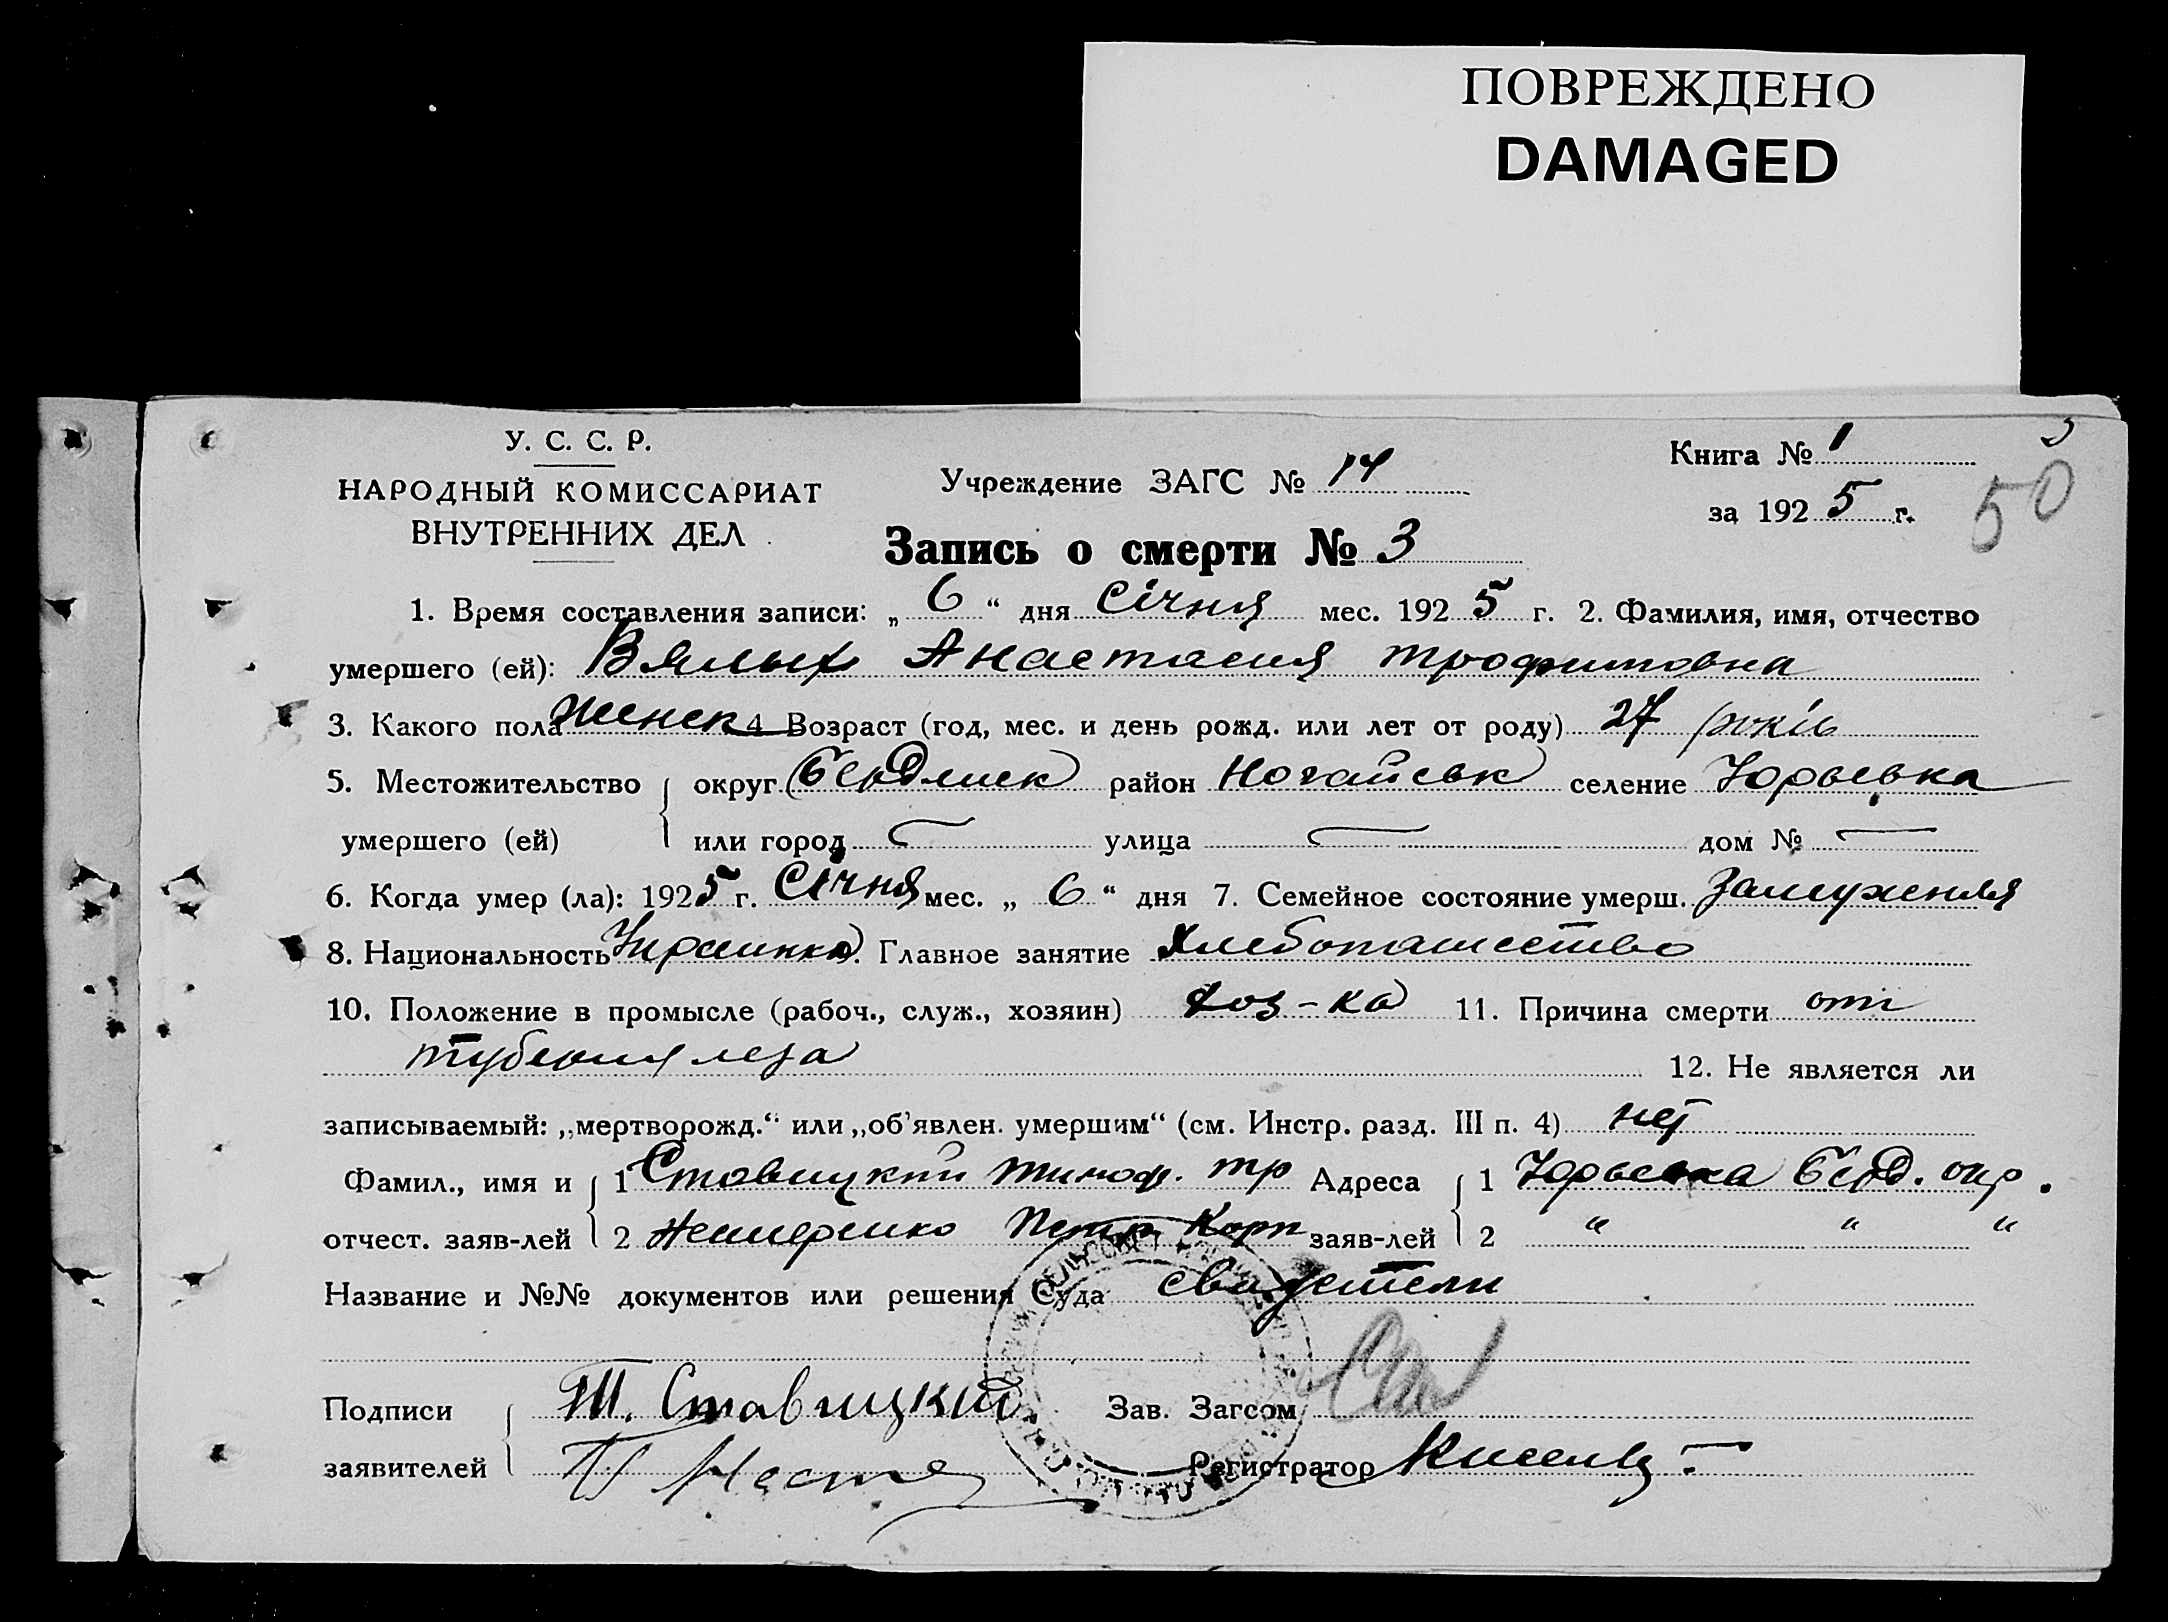 ПОВРЕЖДЕНО
DAMAGED
У. С. С. Р.
НАРОДНЫЙ КОМИССАРИАТ
ВНУТРЕННИХ ДЕЛ
Учреждение ЗАГС № 14
Книга № 1
за 1925 г.
50
Запись о смерти № 3
1. Время составления записи: „6“ дня Січня мес. 1925 г. 2. Фамилия, имя, отчество
умершего (ей): Вялых Анастасия Трофимовна
3. Какого пола женск 4 Возраст (год, мес. и день рожд. или лет от роду) 27 років
5. Местожительство округ Бердянск район Ногайськ селение Юрьевка
умершего (ей) или город — улица — дом № —
6. Когда умер (ла): 1925 г. Січня мес. „6“ дня 7. Семейное состояние умерш. Замужняя
8. Национальность Украинка 9. Главное занятие Хлебопашество
10. Положение в промысле (рабоч., служ., хозяин) хоз-ка 11. Причина смерти от
туберкулеза 12. Не является ли
записываемый: „мертворожд.“ или „об'явлен. умершим“ (см. Инстр. разд. III п. 4) нет
Фамил., имя и 1 Ставицкий Тимоф. Тр Адреса 1 Юрьевка Берд. окр.
отчест. заяв-лей 2 Петр Карп заяв-лей 2 “ “ “
Название и №№ документов или решения Суда свидетели
Подписи Т. Ставицкий Зав. Загсом
заявителей Регистратор